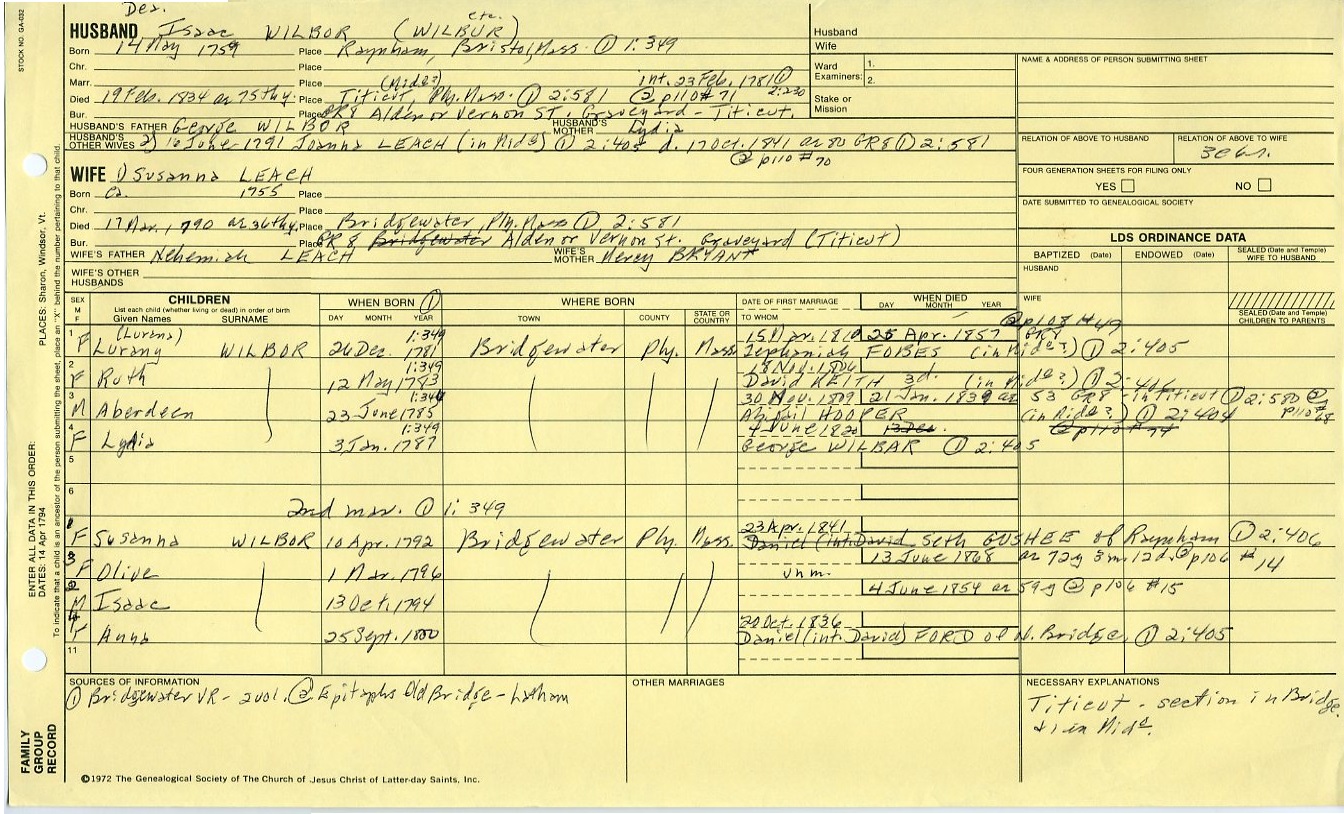 STOCK NO. GA-032
Dea. etc.
HUSBAND Isaac WILBOR (WILBUR)
Born 14 May 1759 Place Raynham, Bristol, Mass. ① 1:349
Chr. Place
Marr. Place (Midd?) int. 23 Feb. 1781 ① 2:230
Died 19 Feb. 1834 ae 75thy. Place Titicut, Ply. Mass. ① 2:581 ② p110 #71
Bur. Place GR8 Alden or Vernon St. Graveyard - Titicut.
HUSBAND'S FATHER George WILBOR HUSBAND'S MOTHER Lydia
HUSBAND'S OTHER WIVES 2) 16 June 1791 Joanna LEACH (in Midd) ① 2:405 d. 17 Oct. 1841 ae 80 GR8 ① 2:581
② p110 #70
WIFE 1) Susanna LEACH
Born Ca. 1755 Place
Chr. Place
Died 17 Mar. 1790 ae 36thy. Place Bridgewater, Ply. Mass ① 2:581
Bur. Place GR8 Bridgewater Alden or Vernon St. Graveyard (Titicut)
WIFE'S FATHER Nehemiah LEACH WIFE'S MOTHER Mercy BRYANT
WIFE'S OTHER HUSBANDS
Husband
Wife
Ward Examiners: 1.
2.
Stake or Mission
NAME & ADDRESS OF PERSON SUBMITTING SHEET
RELATION OF ABOVE TO HUSBAND RELATION OF ABOVE TO WIFE
FOUR GENERATION SHEETS FOR FILING ONLY
YES NO
DATE SUBMITTED TO GENEALOGICAL SOCIETY
LDS ORDINANCE DATA
BAPTIZED (Date) ENDOWED (Date) SEALED (Date and Temple) WIFE TO HUSBAND
HUSBAND
WIFE
SEALED (Date and Temple) CHILDREN TO PARENTS
SEX M F CHILDREN WHEN BORN ① WHERE BORN DATE OF FIRST MARRIAGE WHEN DIED
List each child (whether living or dead) in order of birth
Given Names SURNAME DAY MONTH YEAR TOWN COUNTY STATE OR COUNTRY TO WHOM DAY MONTH YEAR
② p108 #49
1 (Lurena) 1:349 15 Mar. 1810 25 Apr. 1857 GR7
F Lurany WILBOR 26 Dec. 1781 Bridgewater Ply. Mass. Zephaniah FOBES (in Midd?) ① 2:405
2 1:349 18 Nov. 1806
F Ruth 12 May 1783 David KEITH 3d. (in Midd?) ① 2:406
3 1:349 30 Nov. 1809 21 Jan. 1839 ae 53 GR8 - in Titicut ① 2:580 ② p110 #68
M Aberdeen 23 June 1785 Abigail HOOPER (in Midd?) ① 2:404
4 1:349 4 June 1820 13 Dec. ② p110 #74
F Lydia 3 Jan. 1787 George WILBAR ① 2:405
5
6
2nd mar. ① 1:349
1 23 Apr. 1841
F Susanna WILBOR 10 Apr. 1792 Bridgewater Ply. Mass. Daniel (int. David Seth GUSHEE of Raynham ① 2:406
3 13 June 1868 ae 72y 3m. 12d. ② p106 #14
F Olive 1 Mar. 1796 unm.
2 4 June 1854 ae 59y ② p106 #15
M Isaac 13 Oct. 1794
4 20 Oct. 1836
F Anna 25 Sept. 1800 Daniel (int. David) FORD of N. Bridge. ① 2:405
11
SOURCES OF INFORMATION
① Bridgewater VR - 2 vol. ② Epitaphs Old Bridge - Latham
OTHER MARRIAGES
NECESSARY EXPLANATIONS
Titicut - section in Bridge.
& 1 in Midd.
©1972 The Genealogical Society of The Church of Jesus Christ of Latter-day Saints, Inc.
FAMILY GROUP RECORD
ENTER ALL DATA IN THIS ORDER:
DATES: 14 Apr 1794 PLACES: Sharon, Windsor, Vt.
To indicate that a child is an ancestor of the person submitting the sheet, place an "X" behind the number pertaining to that child.